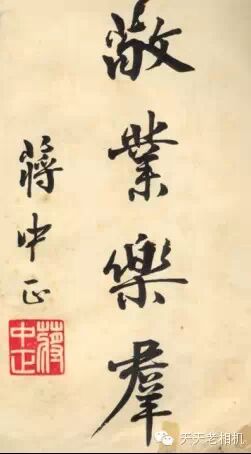 敬業樂羣
蔣中正
蔣中正
天天老相机